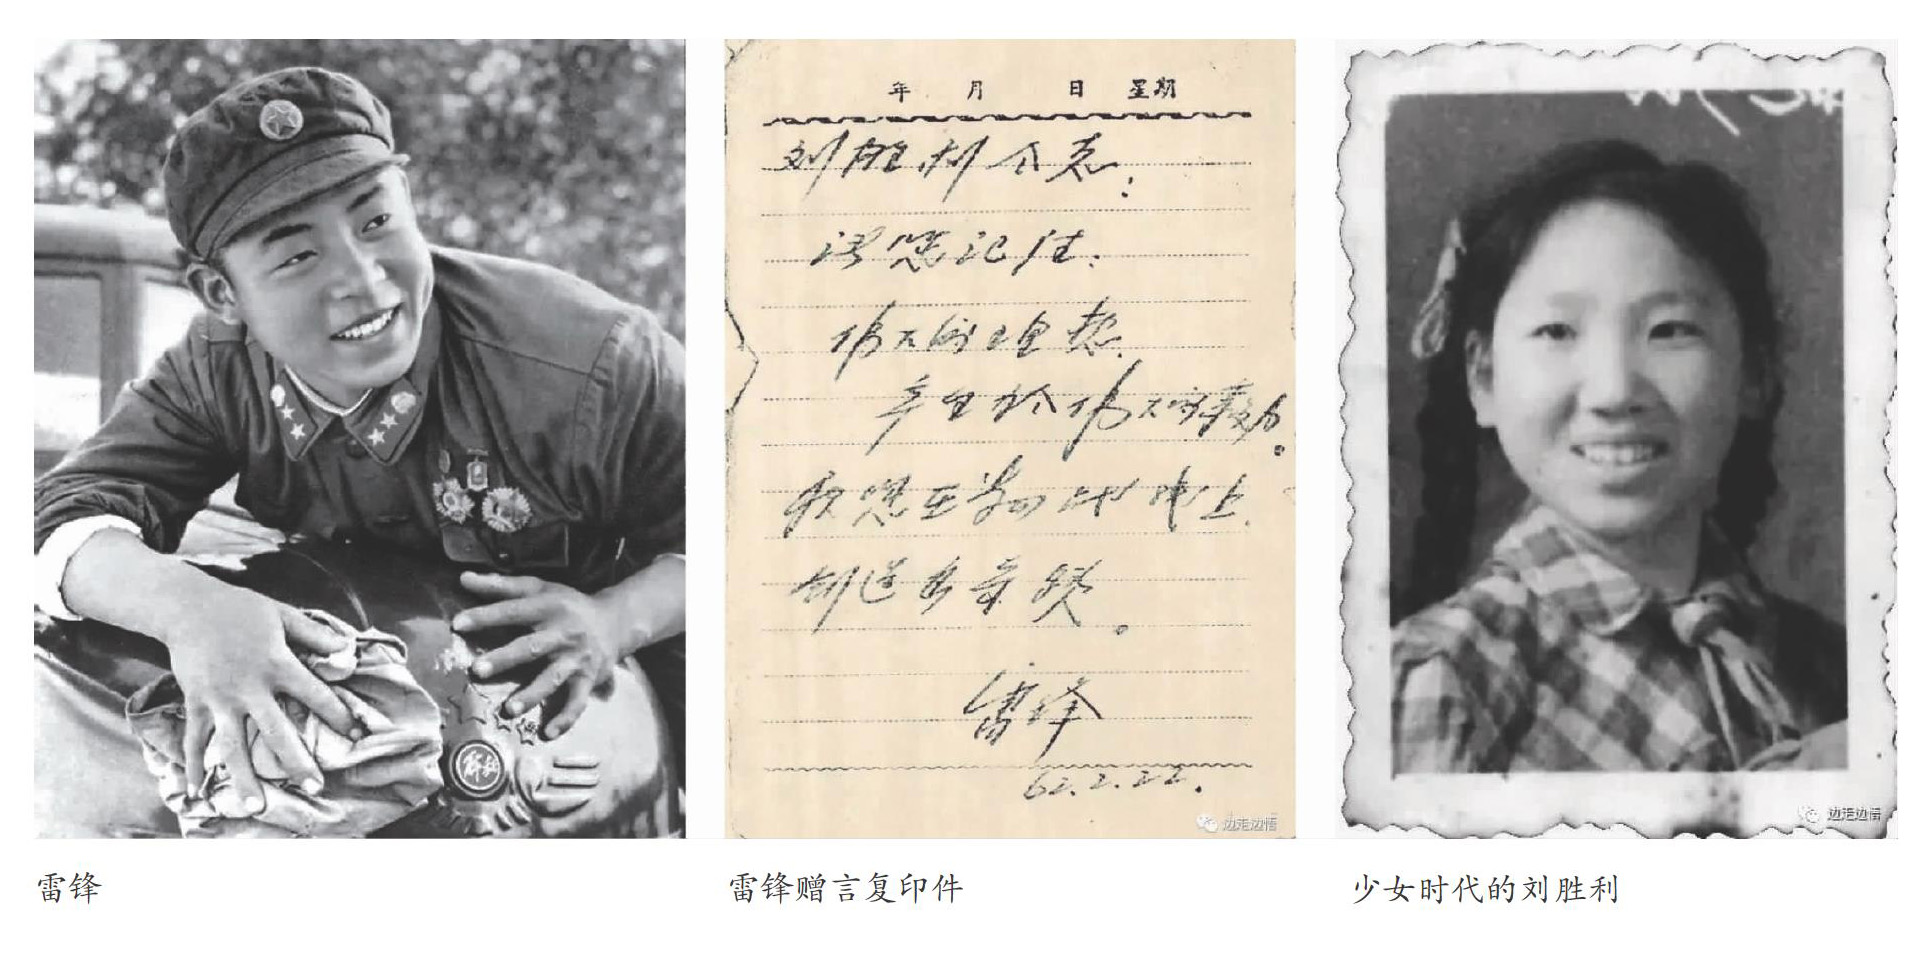 解放
年 月 日 星期
刘胜利仝志:
请您记住:
伟大的理想,
产生於伟大的毅力。
您在
创造
雷锋
62.2.22.
边走边悟
边走边悟
雷锋
雷锋赠言复印件
少女时代的刘胜利